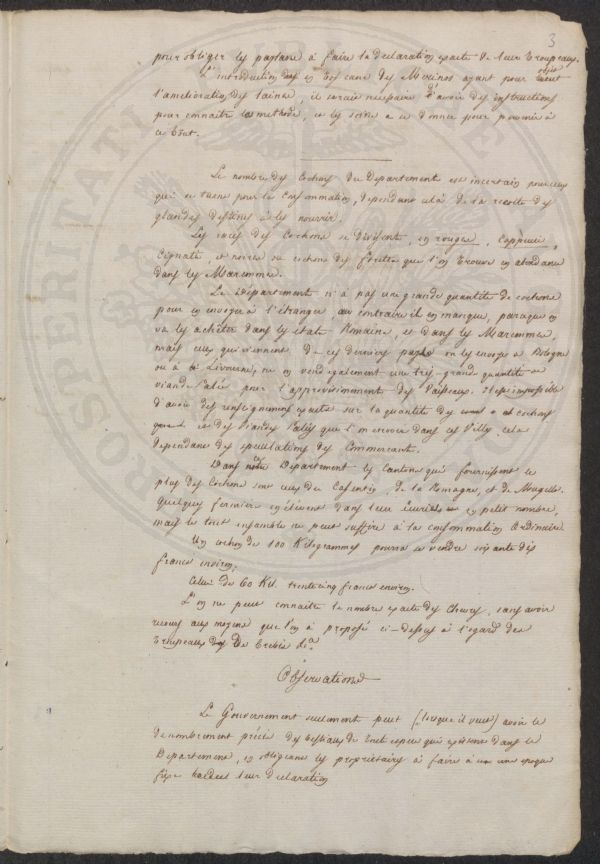 3
pour obliger les paysans à faire la declaration exacte de leurs troupeaux.
L'introduction en Toscane des Merinos ayant pour objet
l'amelioration des laines, il serait necessaire d'avoir des instructions
pour connaitre la methode, et les soins a se donner pour parvenir à
ce but.
Le nombre des Cochons du Departement est incertain pour ceux
qui se tuent pour la Consommation, dependant cela de la recolte des
glandes destinés à les nourrir.
Les races des Cochons se divisent, en rouges,
Cignate, et noires ou cochons des forêts que l'on trouve en abondance
dans les Maremmes.
Le Departement n'à pas une grande quantité de cochons
pour en envoyer à l'etranger, au contraire il en manque, parceque on
va les acheter dans les etats Romains, et dans les Maremmes,
mais ceux qui viennent de ces derniers pays on les envoye à Bologne
ou à Livourne, on en vend egalement une très-grande quantité en
viande salée pour l'approvisionnement des Vaisseaux. Il est impossible
d'avoir des renseignemens exacts sur la quantité des cochons
et des viandes salées que l'on envoie dans ces Villes, cela
dependant des speculations des Commercants.
Dans notre Departement les Cantons qui fournissent le
plus des Cochons sont ceux du Casentin, de la Romagne, et de Mugello.
Quelques fermiers en élevent dans leur ecuries en petit nombre,
mais le tout ensemble ne peut suffire à la consommation Ordinaire
Un cochon de 100 Kilogrammes pourra se vendre soixante dix
francs environ,
Celui de 60 Kil. trentecinq francs environ.
L'on ne peut connaitre le nombre exacte des chevres, sans avoir
recours aux moyens que l'on à proposé ci-dessus à l'egard des
troupeaux des De Brebis &c.
Observations
Le Gouvernement seulement peut (lorsque il veut) avoir le
denombrement précis des bestiaux de toute espece qui existent dans le
Departement, en obligeant les proprietaires à faire à une epoque
fixe leur declaration